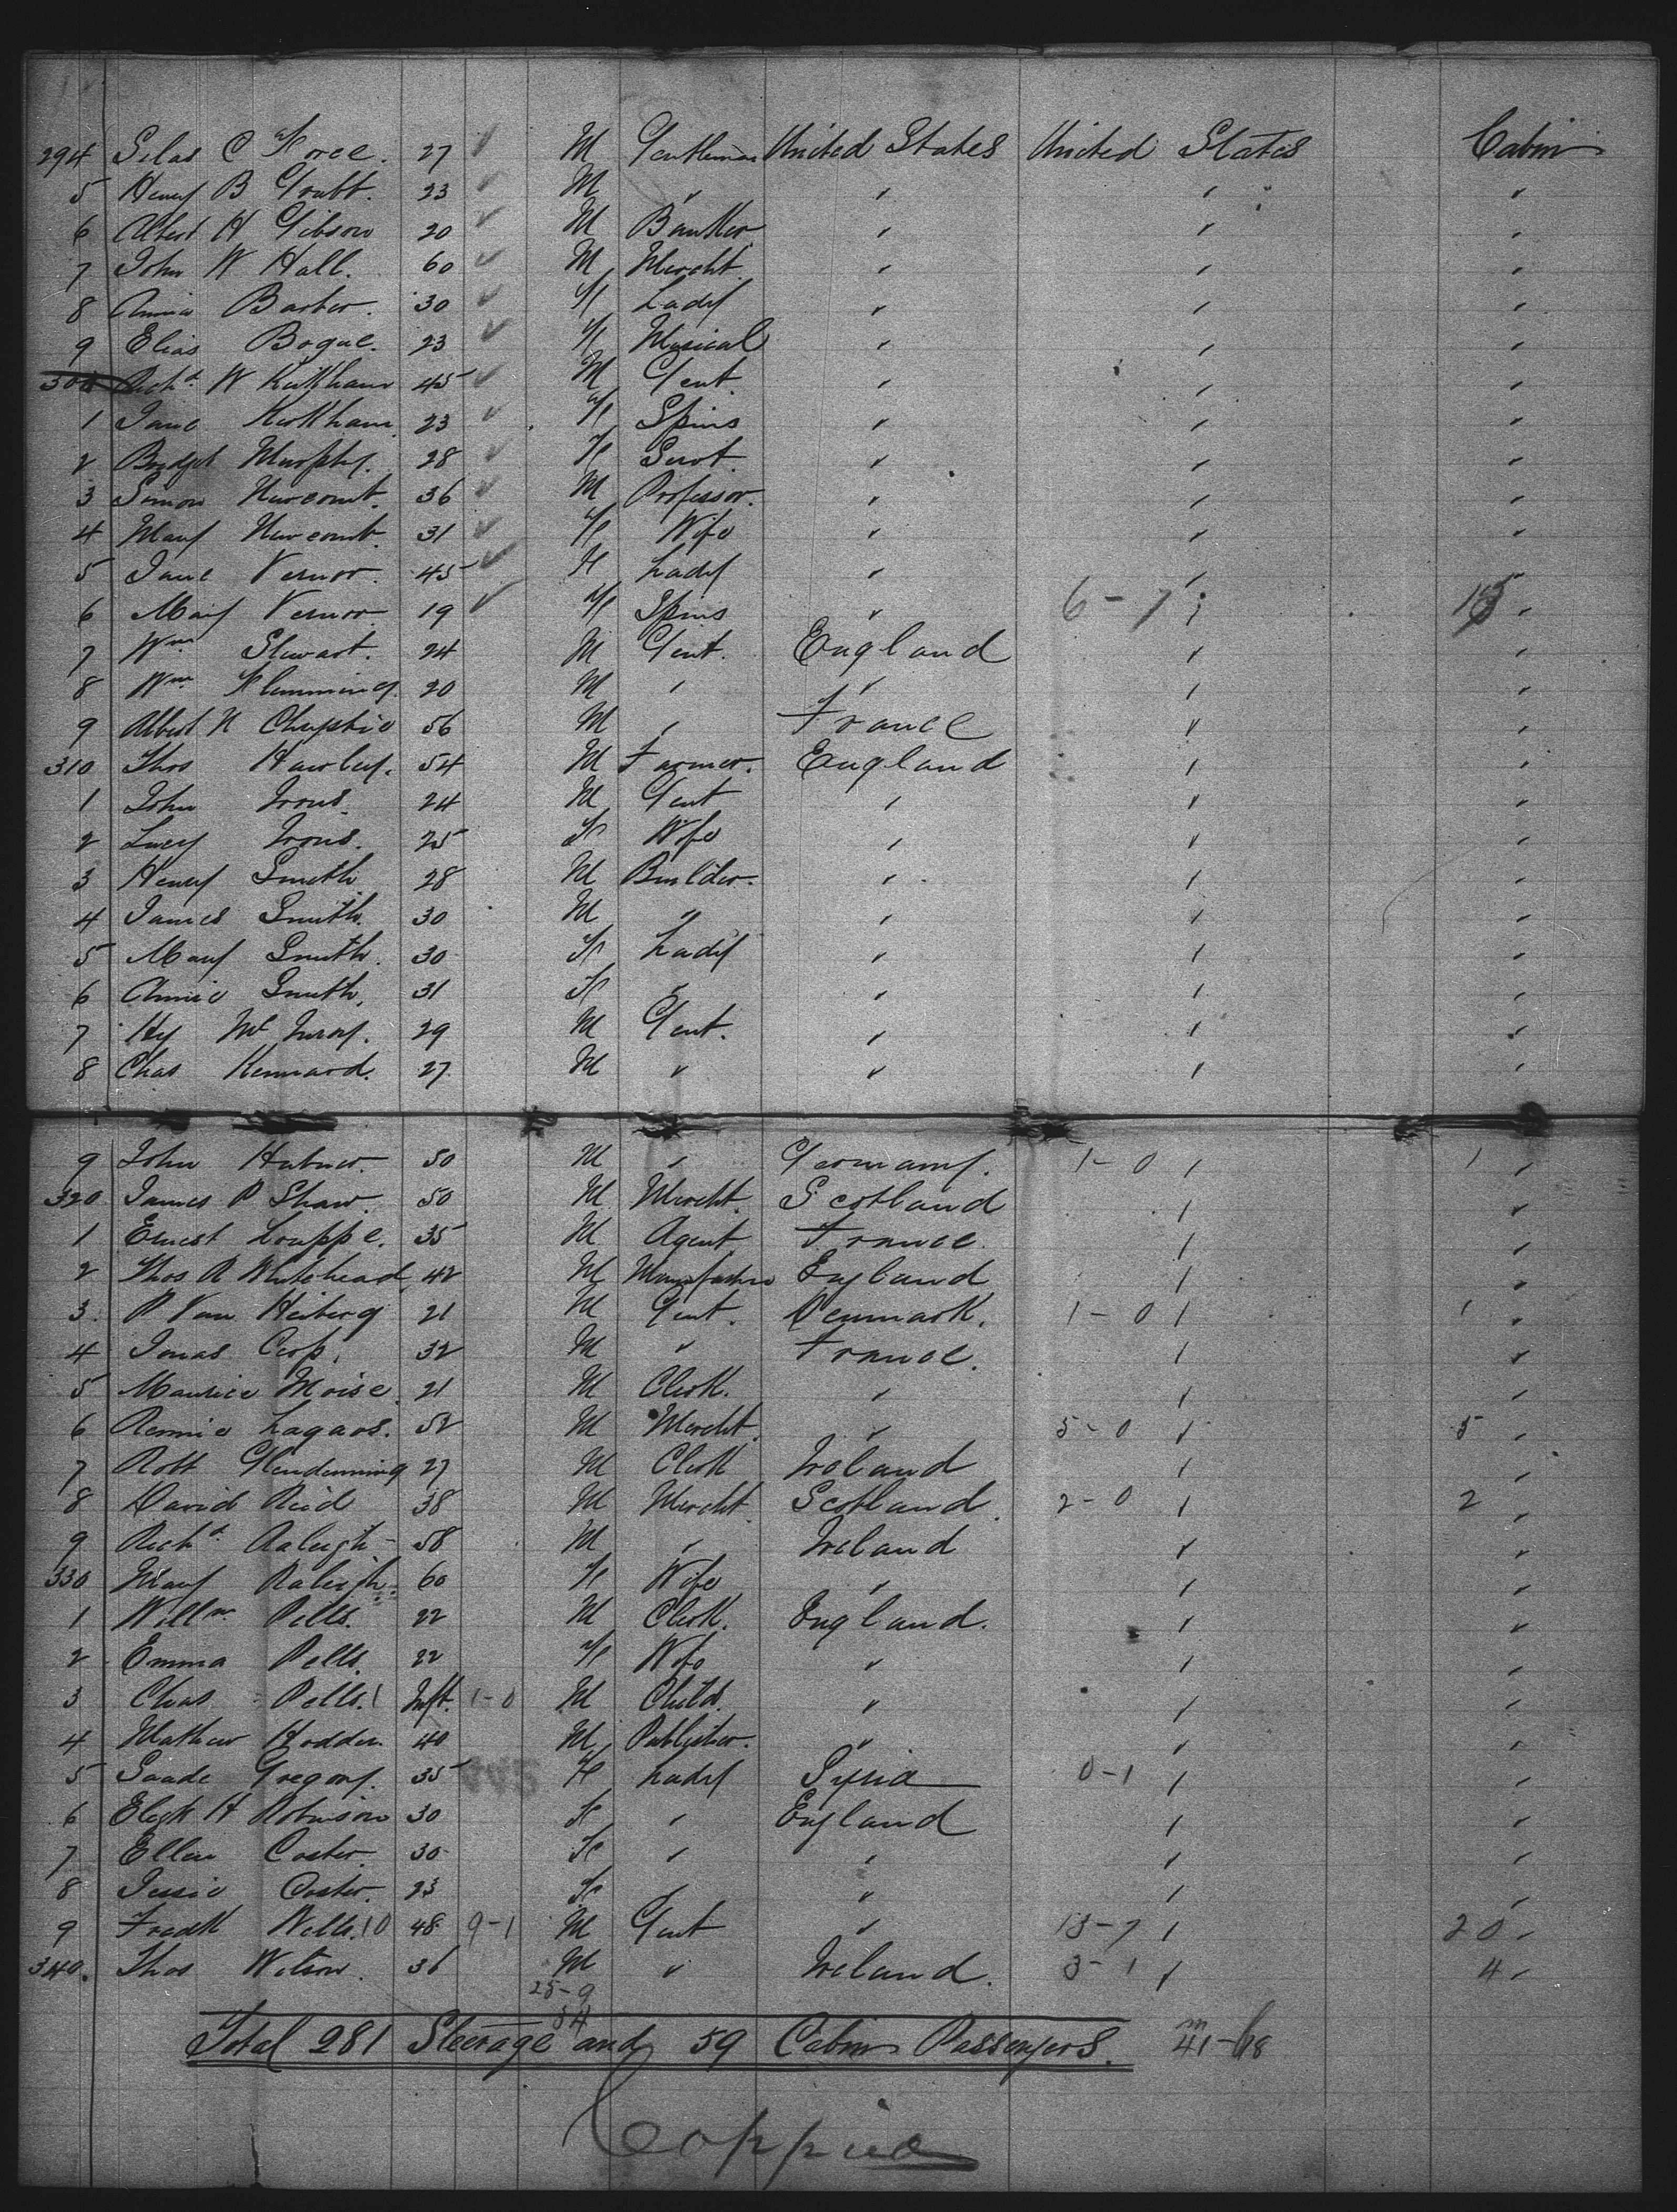 294 Silas C Force. 27 M Gentleman United States United States Cabin
5 Henry B Grubt. 23 M " " " "
6 Albert H Gibson 20 M Banker " " "
7 John W Hall. 60 M Mercht. " " "
8 Annie Barber. 30 F Lady " " "
9 Elias Bogue. 23 F Musical " " "
300 Richd W Kirkham 45 M Gent. " " "
1 Jane Kirkham. 23 F Spins " " "
2 Bridget Murphy. 28 F Servt. " " "
3 Simon Newcomb. 36 M Professor. " " "
4 Mary Newcomb. 31 F Wife " " "
5 Jane Vernor. 45 F Lady " " "
6 Mary Vernor. 19 F Spins " 6-7 " 13 "
7 Wm Stewart. 24 M Gent. England " "
8 Wm Flemming. 20 M " " " "
9 Albert N 56 M " France " "
310 Thos Hawley. 54 M Farmer. England " "
1 John Irons. 24 M Gent " " "
2 Lucy Irons. 25 F Wife " " "
3 Henry Smith 28 M Builder. " " "
4 James Smith. 30 M " " " "
5 Mary Smith. 30 F Lady " " "
6 Annie Smith. 31 F " " " "
7 Hy 29 M Gent. " " "
8 Chas Kennard. 27 M " " " "
9 John Hubner. 50 M " Germany. 1-0 " 1 "
320 James P Shaw. 50 M Mercht. Scotland " "
1 Ernest Louppe. 35 M Agent France. " "
2 Thos R Whitehead 42 M Manufacturer England " "
3. P Van Heiberg 21 M Gent. Denmark. 1-0 " 1 "
4 Jonas 32 M " France. " "
5 Maurice Moise. 21 M Clerk. " " "
6 52 M Mercht. " 5-0 " 5 "
7 Robt Glendenning 27 M Clerk Ireland " "
8 David Reid 38 M Mercht Scotland. 2-0 " 2 "
9 Richd Raleigh 58 M " Ireland " "
330 Mary Raleigh. 60 F Wife " " "
1 Willm. Pells. 22 M Clerk. England. " "
2 Emma Pells. 22 F Wife " " "
3 Chas Pells. 1 Inft. 1-0 M Child. " " "
4 Mathew Hodder. 40 M Publisher. " " "
5 Saade Gregory. 35 F Lady Syria 0-1 " "
6 H Robinson 30 F " England " "
7 Ellen Coster. 30 F " " " "
8 Jessie Coster. 23 F " " " "
9 Fredk Wells. 10 48 9-1 M Gent " 13-7 " 20 "
340. Thos Wilson. 36 M " Ireland. 3-1 " 4 "
25-9
34
Total 281 Steerage and 59 Cabin Passengers. m 41-18
Coppied